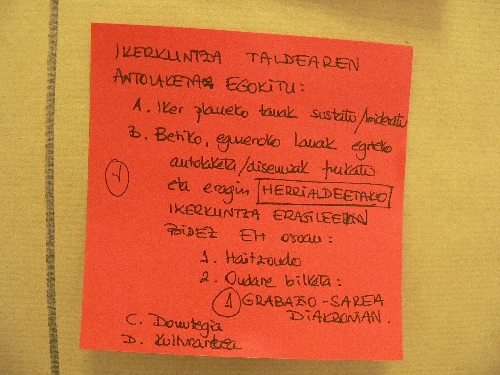 IKERKUNTZA TALDEAREN
ANTOLAKETA EGOKITU:
A. Iker planeko lanak sustatu/bideratu
B. Betiko, eguneroko lanak egiteko
antolaketa/disenuak frikatu
eta eragin HERRIALDEETAKO
IKERKUNTZA ERAGILEEKIN
BIDEZ EH osoan:
1. Haitzondo
2. Ondare bilketa:
1 GRABAZIO-SAREA
DIAKRONIAN.
C. Donutegia
D. Kulturartea